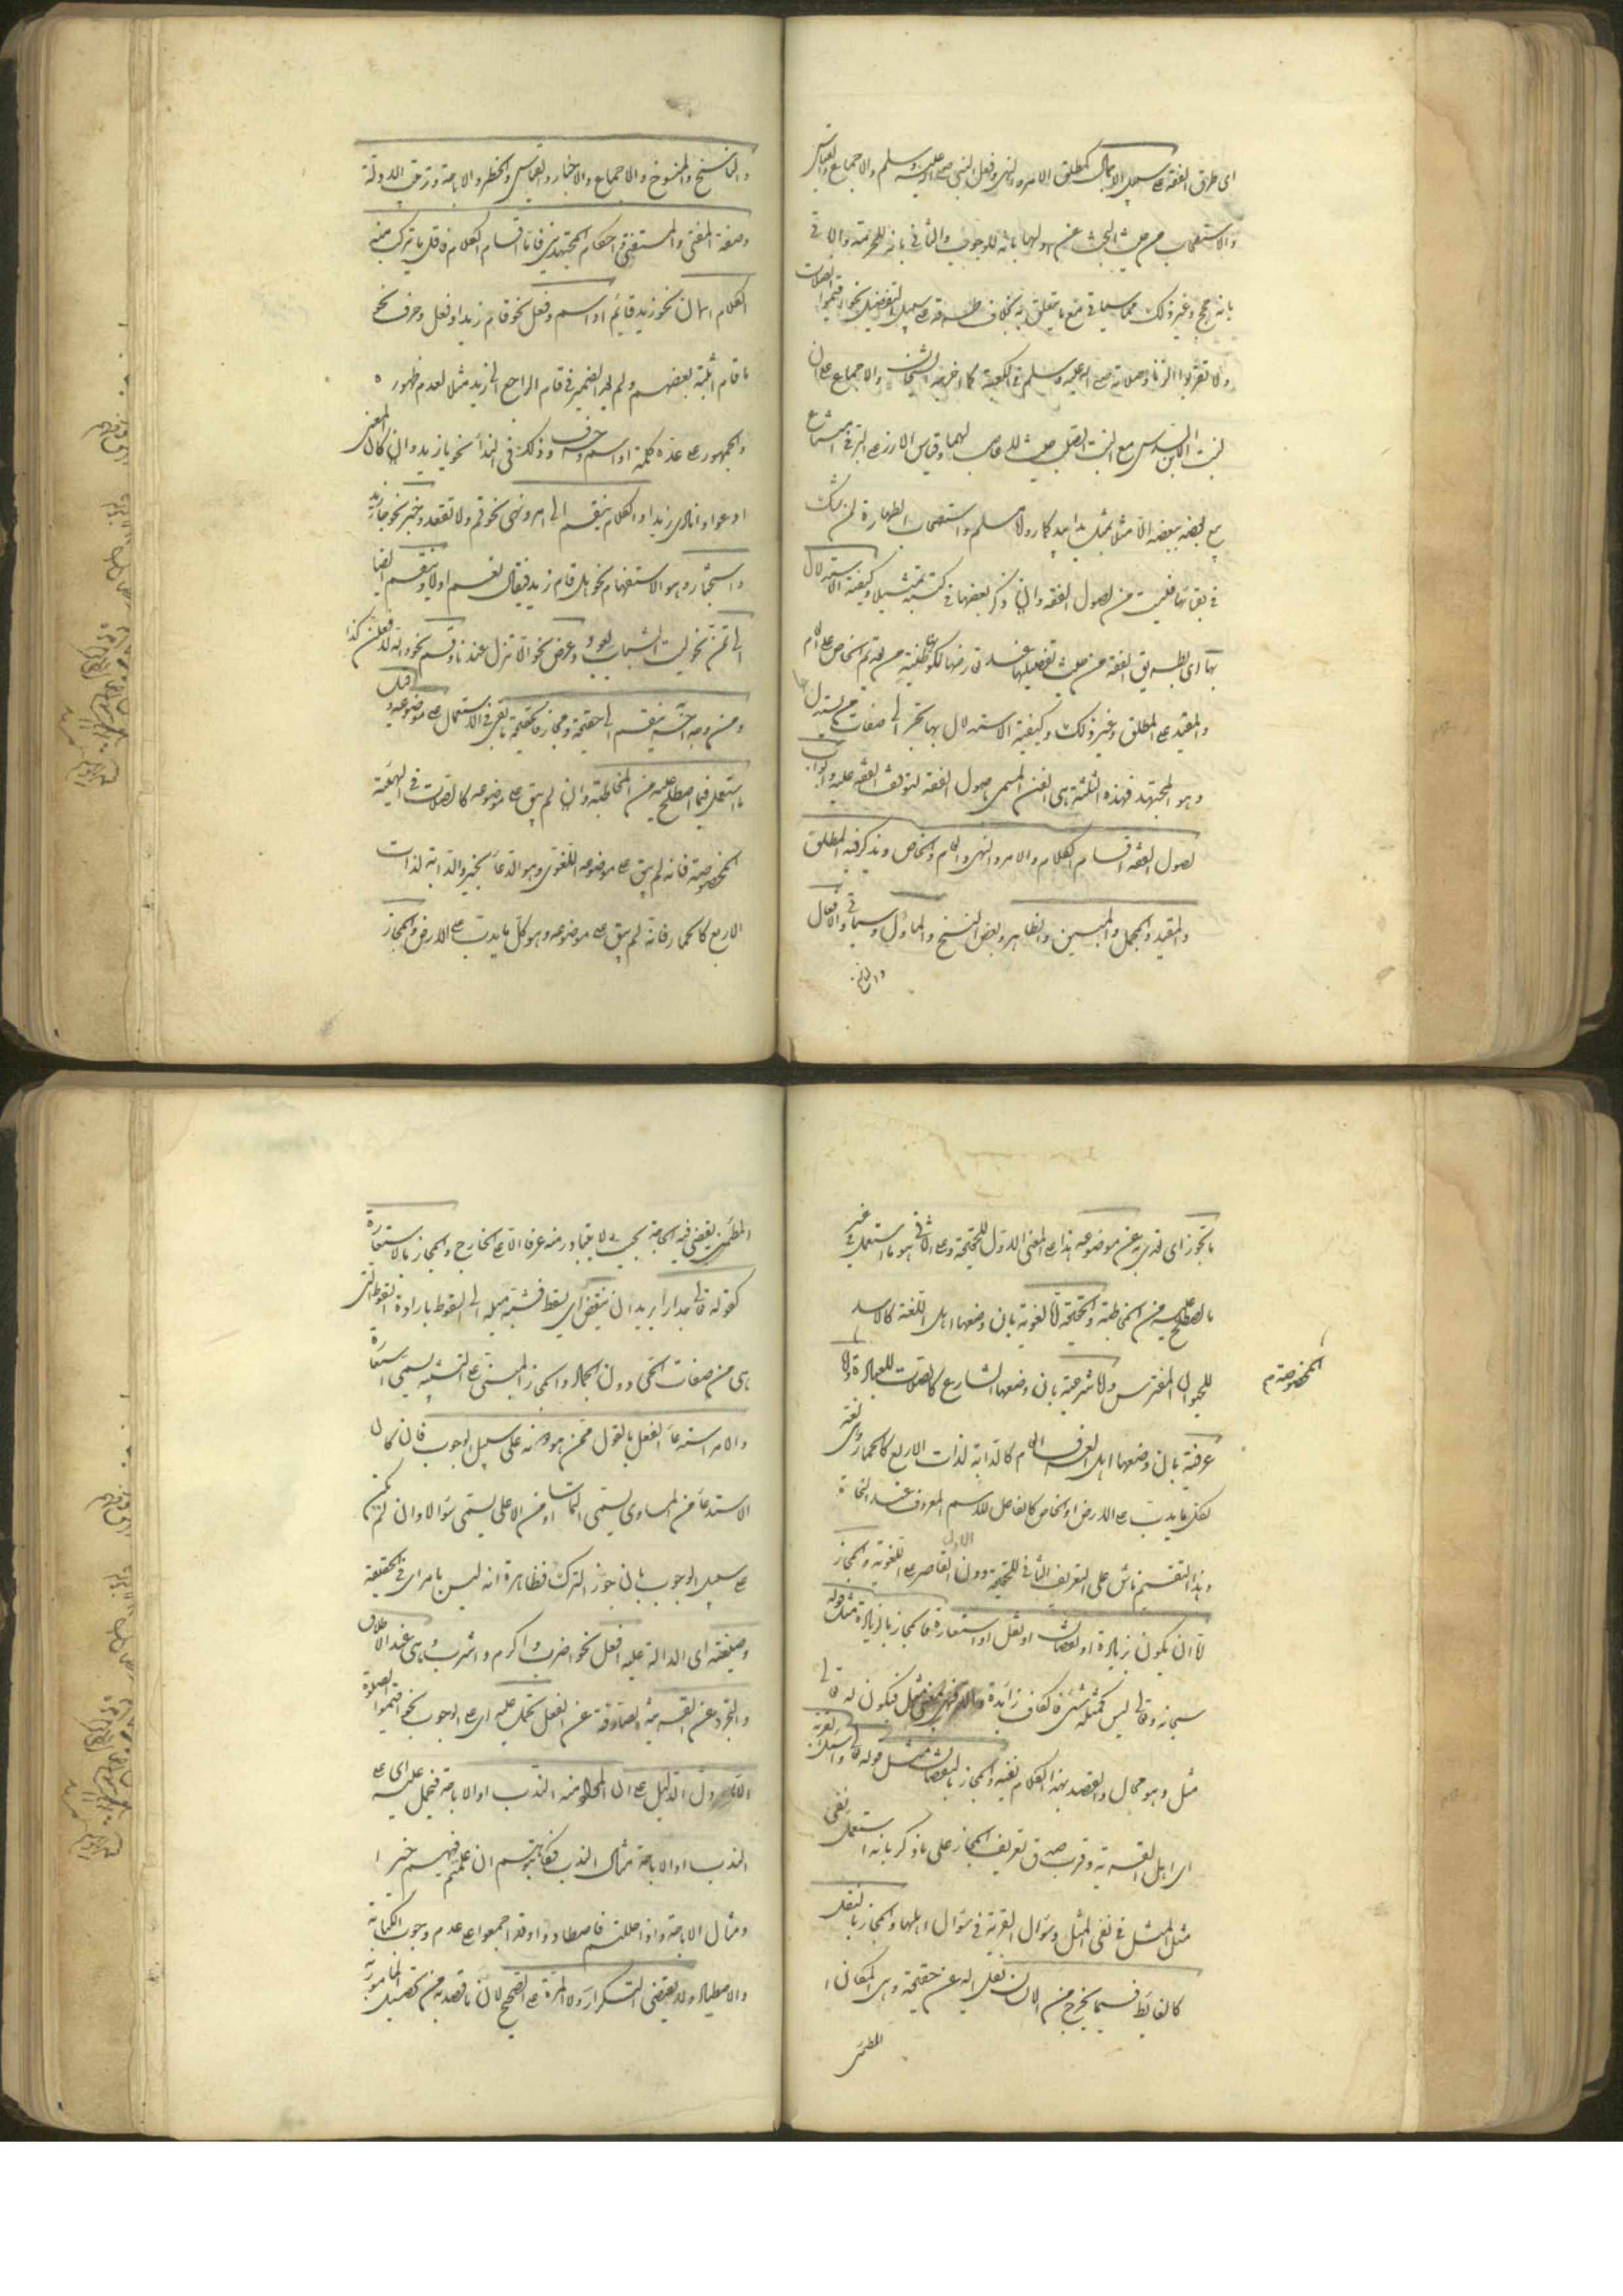 اى طرق الفقه على سبيل الاجمال كمطلق الامر والنهى وفعل النبى صلى الله عليه وسلم والاجماع والقياس
والاستصحاب من حيث البحث عن اولها بانه للوجوب والثانى بانه للحرمة والباقى
بانه حجج وغير ذلك مما سياتى مع ما يتعلق به بخلاف طرقه على سبيل التفصيل نحو اقيموا الصلات
ولا تقربوا الزنا وصلاته صلى الله عليه وسلم فى الكعبة كما اخرجه الشيخان والاجماع على ان
لبنت الابن السدس مع البنت الصلب حيث لا عاصب لهما وقياس الارز على البر فى امتناع
بيع بعضه ببعضه الا مثلا بمثل يدا بيد كما رواه مسلم واستصحاب الطهارة لمن شك
فى بقائها فليست من اصول الفقه وان ذكر بعضها فى كتبه تمثيلا وكيفية الاستدلال
بها اى بطريق الفقه من حيث تفصيلها عند تعارضها لكونها ظنية من تقديم الخاص على العام
والمقيد على المطلق وغير ذلك وكيفية الاستدلال بها تجر الى صفات من يستدل بها
وهو المجتهد فهذه الثلثة هى الفن المسمى باصول الفقه لتوقف الفقه عليه وابواب
اصول الفقه اقسام الكلام والامر والنهى والعام والخاص ويذكر فيه المطلق
والمقيد والمجمل والمبين والظاهر وبعض النسخ والماؤل وسياتى والافعال
والناسخ
والناسخ والمنسوخ والاجماع والاخبار والقياس والحظر والاباحة وترتيب الادلة
وصفة المفتى والمستفتى واحكام المجتهدين فاما اقسام الكلام فاقل ما يتركب منه
الكلام اسمان نحو زيد قائم او اسم وفعل نحو قام زيد او فعل وحرف نحو
ما قام اثبته بعضهم ولم يعد الضمير فى قام الراجع الى زيد مثلا لعدم ظهوره
والجمهور على عده كلمة او اسم وحرف وذلك فى النداء نحو يا زيد وان كان المعنى
ادعو او انادى زيدا والكلام ينقسم الى امر ونهى نحو قم ولا تقعد وخبر نحو جاء زيد
واستخبار وهو الاستفهام نحو هل قام زيد فيقال نعم او لا وينقسم ايضا
الى تمن نحو ليت الشباب يعود وعرض نحو الا تنزل عندنا وقسم نحو والله لافعلن كذا
ومن وجه آخر ينقسم الى حقيقة ومجاز فالحقيقة ما بقى فى الاستعمال على موضوعه وقيل
ما استعمل فيما اصطلح عليه من المخاطبة وان لم يبق على موضوعه كالصلات فى الهيئة
المخصوصة فانه لم يبق على موضوعه اللغوى وهو الدعاء بخير والدابة لذات
الاربع كالحمار فانه لم يبق على موضوعه وهو كل ما يدب على الارض والمجاز
ما تجوز اى تعدى به عن موضوعه هذا على المعنى الاول للحقيقة وعلى الثانى هو ما استعمل فى غير
ما اصطلح عليه من المخاطبة والحقيقة اما لغوية بان وضعها اهل اللغة كالاسد
للحيوان المفترس واما شرعية بان وضعها الشارع كالصلات للعبادة واما
المخصوصة م
عرفية بان وضعها اهل العرف العام كالدابة لذات الاربع كالحمار وهى لغة
لكل ما يدب على الارض او الخاص كالفاعل للاسم المعروف عند النحاة
وهذا التقسيم ماش على التعريف الثانى للحقيقة دون الاول القاصر على اللغوية والمجاز
اما ان يكون بزيادة او نقصان او نقل او استعارة فالمجاز بالزيادة مثل قوله
سبحانه وتعالى ليس كمثله شئ فالكاف زائدة والا فهى بمعنى مثل فيكون له تعالى
مثل وهو محال والقصد بهذا الكلام نفيه والمجاز بالنقصان مثل قوله تعالى واسئل القرية
اى اهل القرية وقرب صدق تعريف المجاز على ما ذكر بانه استعمل نفى
مثل المثل فى نفى المثل وسؤال القرية فى سؤال اهلها والمجاز بالنقل
كالغايط فيما يخرج من الانسان نقل اليه عن حقيقة وهى المكان
المطمئن
المطمئن يقضى فيه الحاجة بحيث لا يتبادر منه عرفا الا الخارج والمجاز بالاستعارة
كقوله تعالى جدارا يريد ان ينقض اى يسقط فشبه ميله الى السقوط بارادة السقوط التى
هى من صفات الحى دون الجماد والمجاز المبنى على التشبيه يسمى استعارة
والامر استدعاء الفعل بالقول ممن هو دونه على سبيل الوجوب فان كان
الاستدعاء من المساوى يسمى التماسا او من الاعلى يسمى سؤالا وان لم يكن
على سبيل الوجوب بان جوز الترك فظاهره انه ليس بامر اى فى الحقيقة
وصيغته اى الدالة عليه افعل نحو اضرب واكرم واشرب وهى عند الاطلاق
والتجرد عن القرينة الصارفة عن الفعل تحمل عليه اى على الوجوب نحو اقيموا الصلوة
الا ما دل الدليل على ان المراد منه الندب او الاباحة فيحمل عليه اى على
الندب او الاباحة مثال الندب فكاتبوهم ان علمتم فيهم خيرا
ومثال الاباحة واذا حللتم فاصطادوا وقد اجمعوا على عدم وجوب الكتابة
والاصطياد ولا يقتضى التكرار ولا المرة على الصحيح لان ما قصد به من تحصيل المامور به